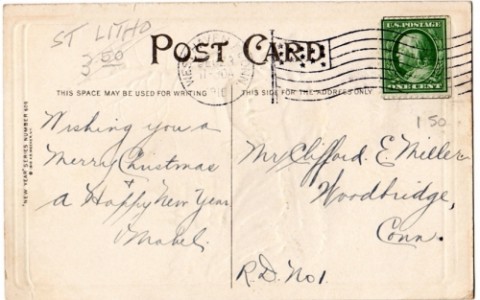 ST LITHO
3.50
POST CARD
U.S. POSTAGE
ONE CENT
THIS SPACE MAY BE USED FOR WRITING
THIS SIDE FOR THE ADDRESS ONLY
1 50
Wishing you a
Merry Christmas
+
a Happy New Year
Mabel.
Mr Clifford. E. Miller
Woodbridge,
Conn.
R.D. No 1.
"NEW YEAR" SERIES NUMBER